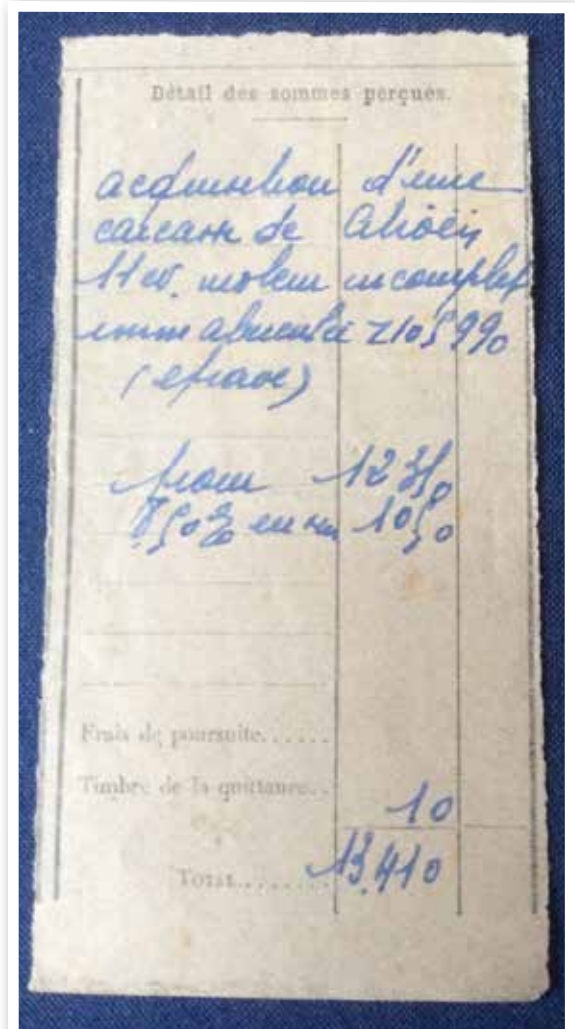 Détail des sommes perçues.
acquisition d'une
carcasse de Citroën
11 cv. moteur incomplet
immatriculée 7105990
(épave)
pour 12350
8,50% en sus 1050
Frais de poursuite......
Timbre de la quittance.. 10
TOTAL........ 13.410